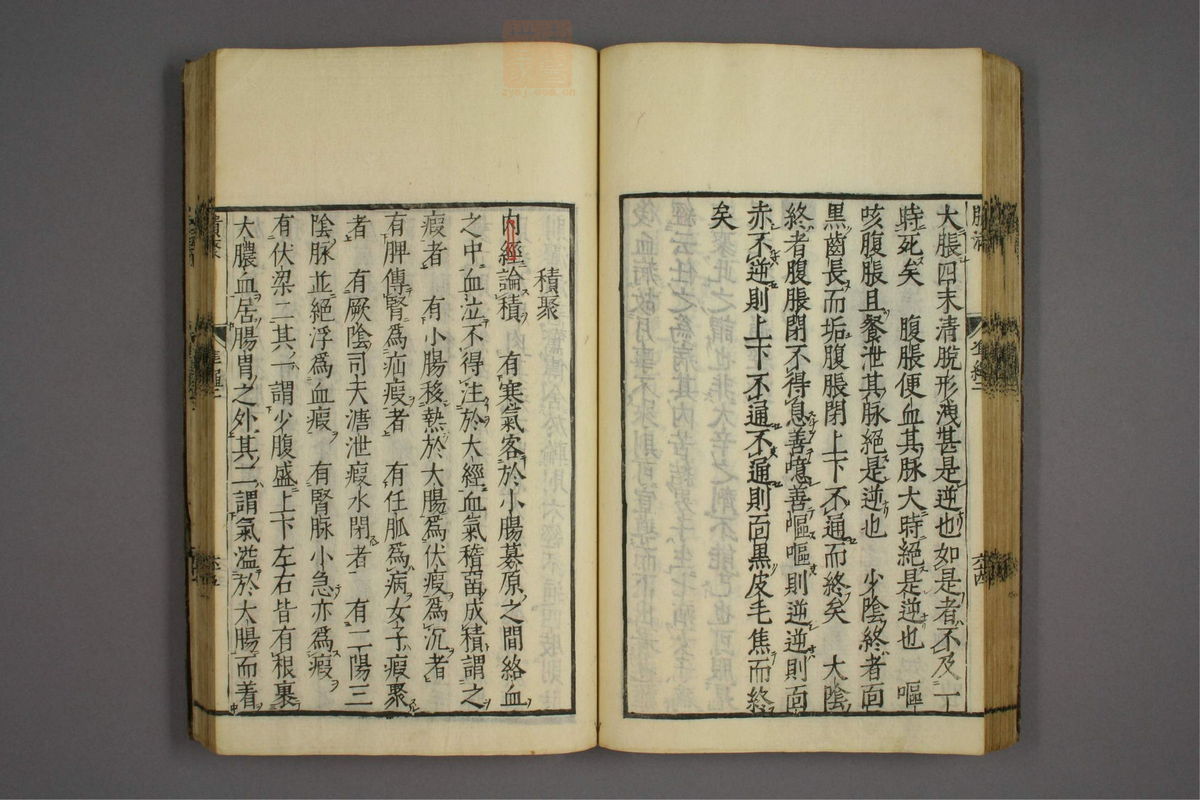 大脹四末清脫形洩甚是逆也如是者不及一
時死矣　腹脹便血其脉大時絕是逆也　嘔
咳腹脹且飱泄其脉絕是逆也　少陰終者面
黑齒長而垢腹脹閉上下不通而終矣　太陰
終者腹脹閉不得息善噫善嘔嘔則逆逆則面
赤不逆則上下不通不通則面黑皮毛焦而終
矣
積聚
內經論積　有寒氣客於小腸募原之間絡血
之中血泣不得注於大經血氣稽畱成積謂之
瘕者　有小腸移熱於大腸爲伏瘕爲沉者
有脾傳腎爲疝瘕者　有任脉爲病女子瘕聚
者　有厥陰司天溏泄瘕水閉者　有二陽三
陰脉並絕浮爲血瘕　有腎脉小急亦爲瘕
有伏梁二其一謂少腹盛上下左右皆有根裹
大膿血居腸胃之外其二謂氣溢於大腸而着
積聚